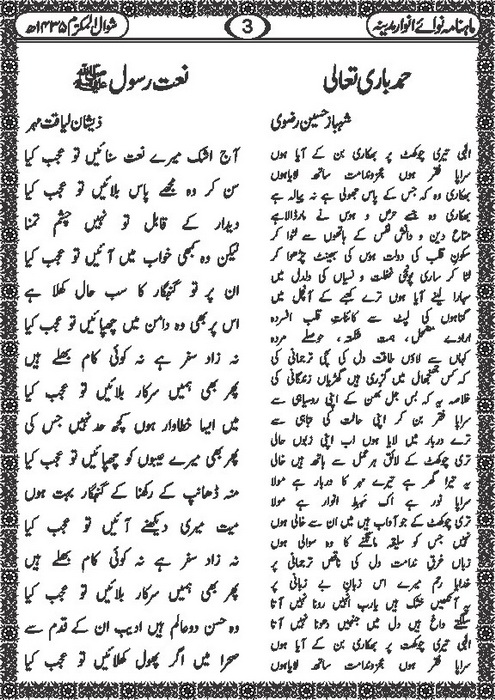 ماہنامہ نوائے انوار مدینہ
3
شوال المکرم ۱۴۳۵ھ
حمد باری تعالی
شہباز حسین رضوی
الٰہی تیری چوکھٹ پر بھکاری بن کے آیا ہوں
سراپا فقر ہوں عجز و ندامت ساتھ لایا ہوں
بھکاری وہ کہ جس کے پاس جھولی ہے نہ پیالہ ہے
بھکاری وہ جسے حرص و ہوس نے مار ڈالا ہے
متاع دین و دانش نفس کے ہاتھوں سے لٹوا کر
سکون قلب کی دولت ہوس کی بھینٹ چڑھوا کر
لٹا کر ساری پونجی غفلت و نسیاں کی دلدل میں
سہارا لینے آیا ہوں ترے کعبے کے آنچل میں
گناہوں کی لپٹ سے کائنات قلب افسردہ
ارادے مضمحل، ہمت شکستہ، حوصلے مردہ
کہاں سے لاؤں طاقت دل کی سچی ترجمانی کی
کہ کس جنجال میں گزری ہیں گھڑیاں زندگانی کی
خلاصہ یہ کہ بس جل بھن کے اپنی روسیاہی سے
سراپا فقر بن کر اپنی حالت کی تباہی سے
ترے دربار میں لایا ہوں اب اپنی زبوں حالی
تری چوکھٹ کے لائق ہر عمل سے ہاتھ ہیں خالی
یہ تیرا گھر ہے تیرے مہر کا دربار ہے مولا
سراپا نور ہے اک مہبط انوار ہے مولا
تری چوکھٹ کے جو آداب ہیں میں ان سے خالی ہوں
نہیں جس کو سلیقہ مانگنے کا وہ سوالی ہوں
زباں غرق ندامت دل کی ناقص ترجمانی پر
خدایا رحم میرے اس زبان بے زبانی پر
یہ آنکھیں خشک ہیں یارب انہیں رونا نہیں آتا
سلگتے داغ ہیں دل میں جنہیں دھونا نہیں آتا
الٰہی تیری چوکھٹ پر بھکاری بن کے آیا ہوں
سراپا فقر ہوں عجز و ندامت ساتھ لایا ہوں
نعت رسول ﷺ
ذیشان لیاقت مہر
آج اشک میرے نعت سنائیں تو عجب کیا
سن کر وہ مجھے پاس بلائیں تو عجب کیا
دیدار کے قابل تو نہیں چشم تمنا
لیکن وہ کبھی خواب میں آئیں تو عجب کیا
ان پر تو گنہگار کا سب حال کھلا ہے
اس پر بھی وہ دامن میں چھپائیں تو عجب کیا
نہ زاد سفر ہے نہ کوئی کام بھلے ہیں
پھر بھی ہمیں سرکار بلائیں تو عجب کیا
میں ایسا خطاوار ہوں کچھ حد نہیں جس کی
پھر بھی میرے عیبوں کو چھپائیں تو عجب کیا
منہ ڈھانپ کے رکھنا کے گنہگار بہت ہوں
میت میری دیکھنے آئیں تو عجب کیا
نہ زاد سفر ہے نہ کوئی کام بھلے ہیں
پھر بھی ہمیں سرکار بلائیں تو عجب کیا
وہ حسن دو عالم ہیں ادیب ان کے قدم سے
صحرا میں اگر پھول کھلائیں تو عجب کیا